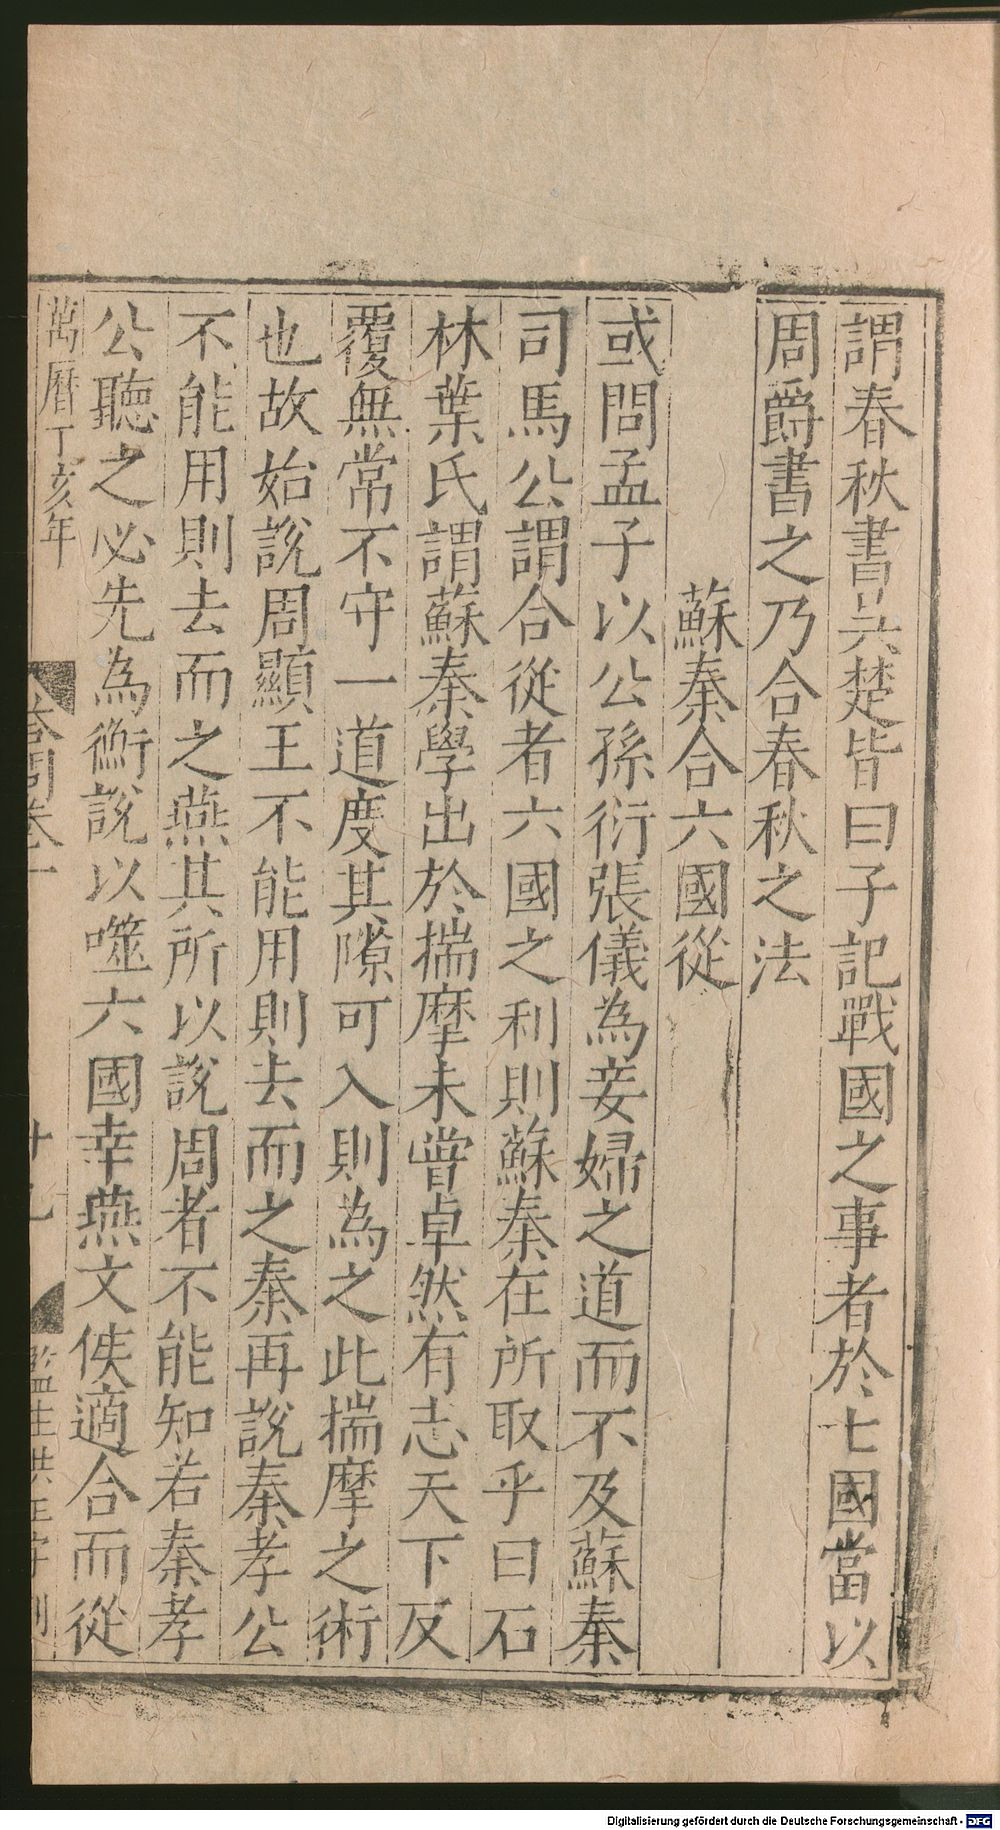 謂春秋書吳楚皆曰子記戰國之事者於七國當以
周爵書之乃合春秋之法
蘇秦合六國從
或問孟子以公孫衍張儀為妾婦之道而不及蘇秦
司馬公謂合從者六國之利則蘇秦在所取乎曰石
林葉氏謂蘇秦學出於揣摩未嘗卓然有志天下反
覆無常不守一道度其隙可入則為之此揣摩之術
也故始說周顯王不能用則去而之秦再說秦孝公
不能用則去而之燕其所以說周者不能知若秦孝
公聽之必先為衡說以噬六國幸燕文侯適合而從
萬曆丁亥年
答問卷十
監生洪
Digitalisierung gefördert durch die Deutsche Forschungsgemeinschaft - DFG